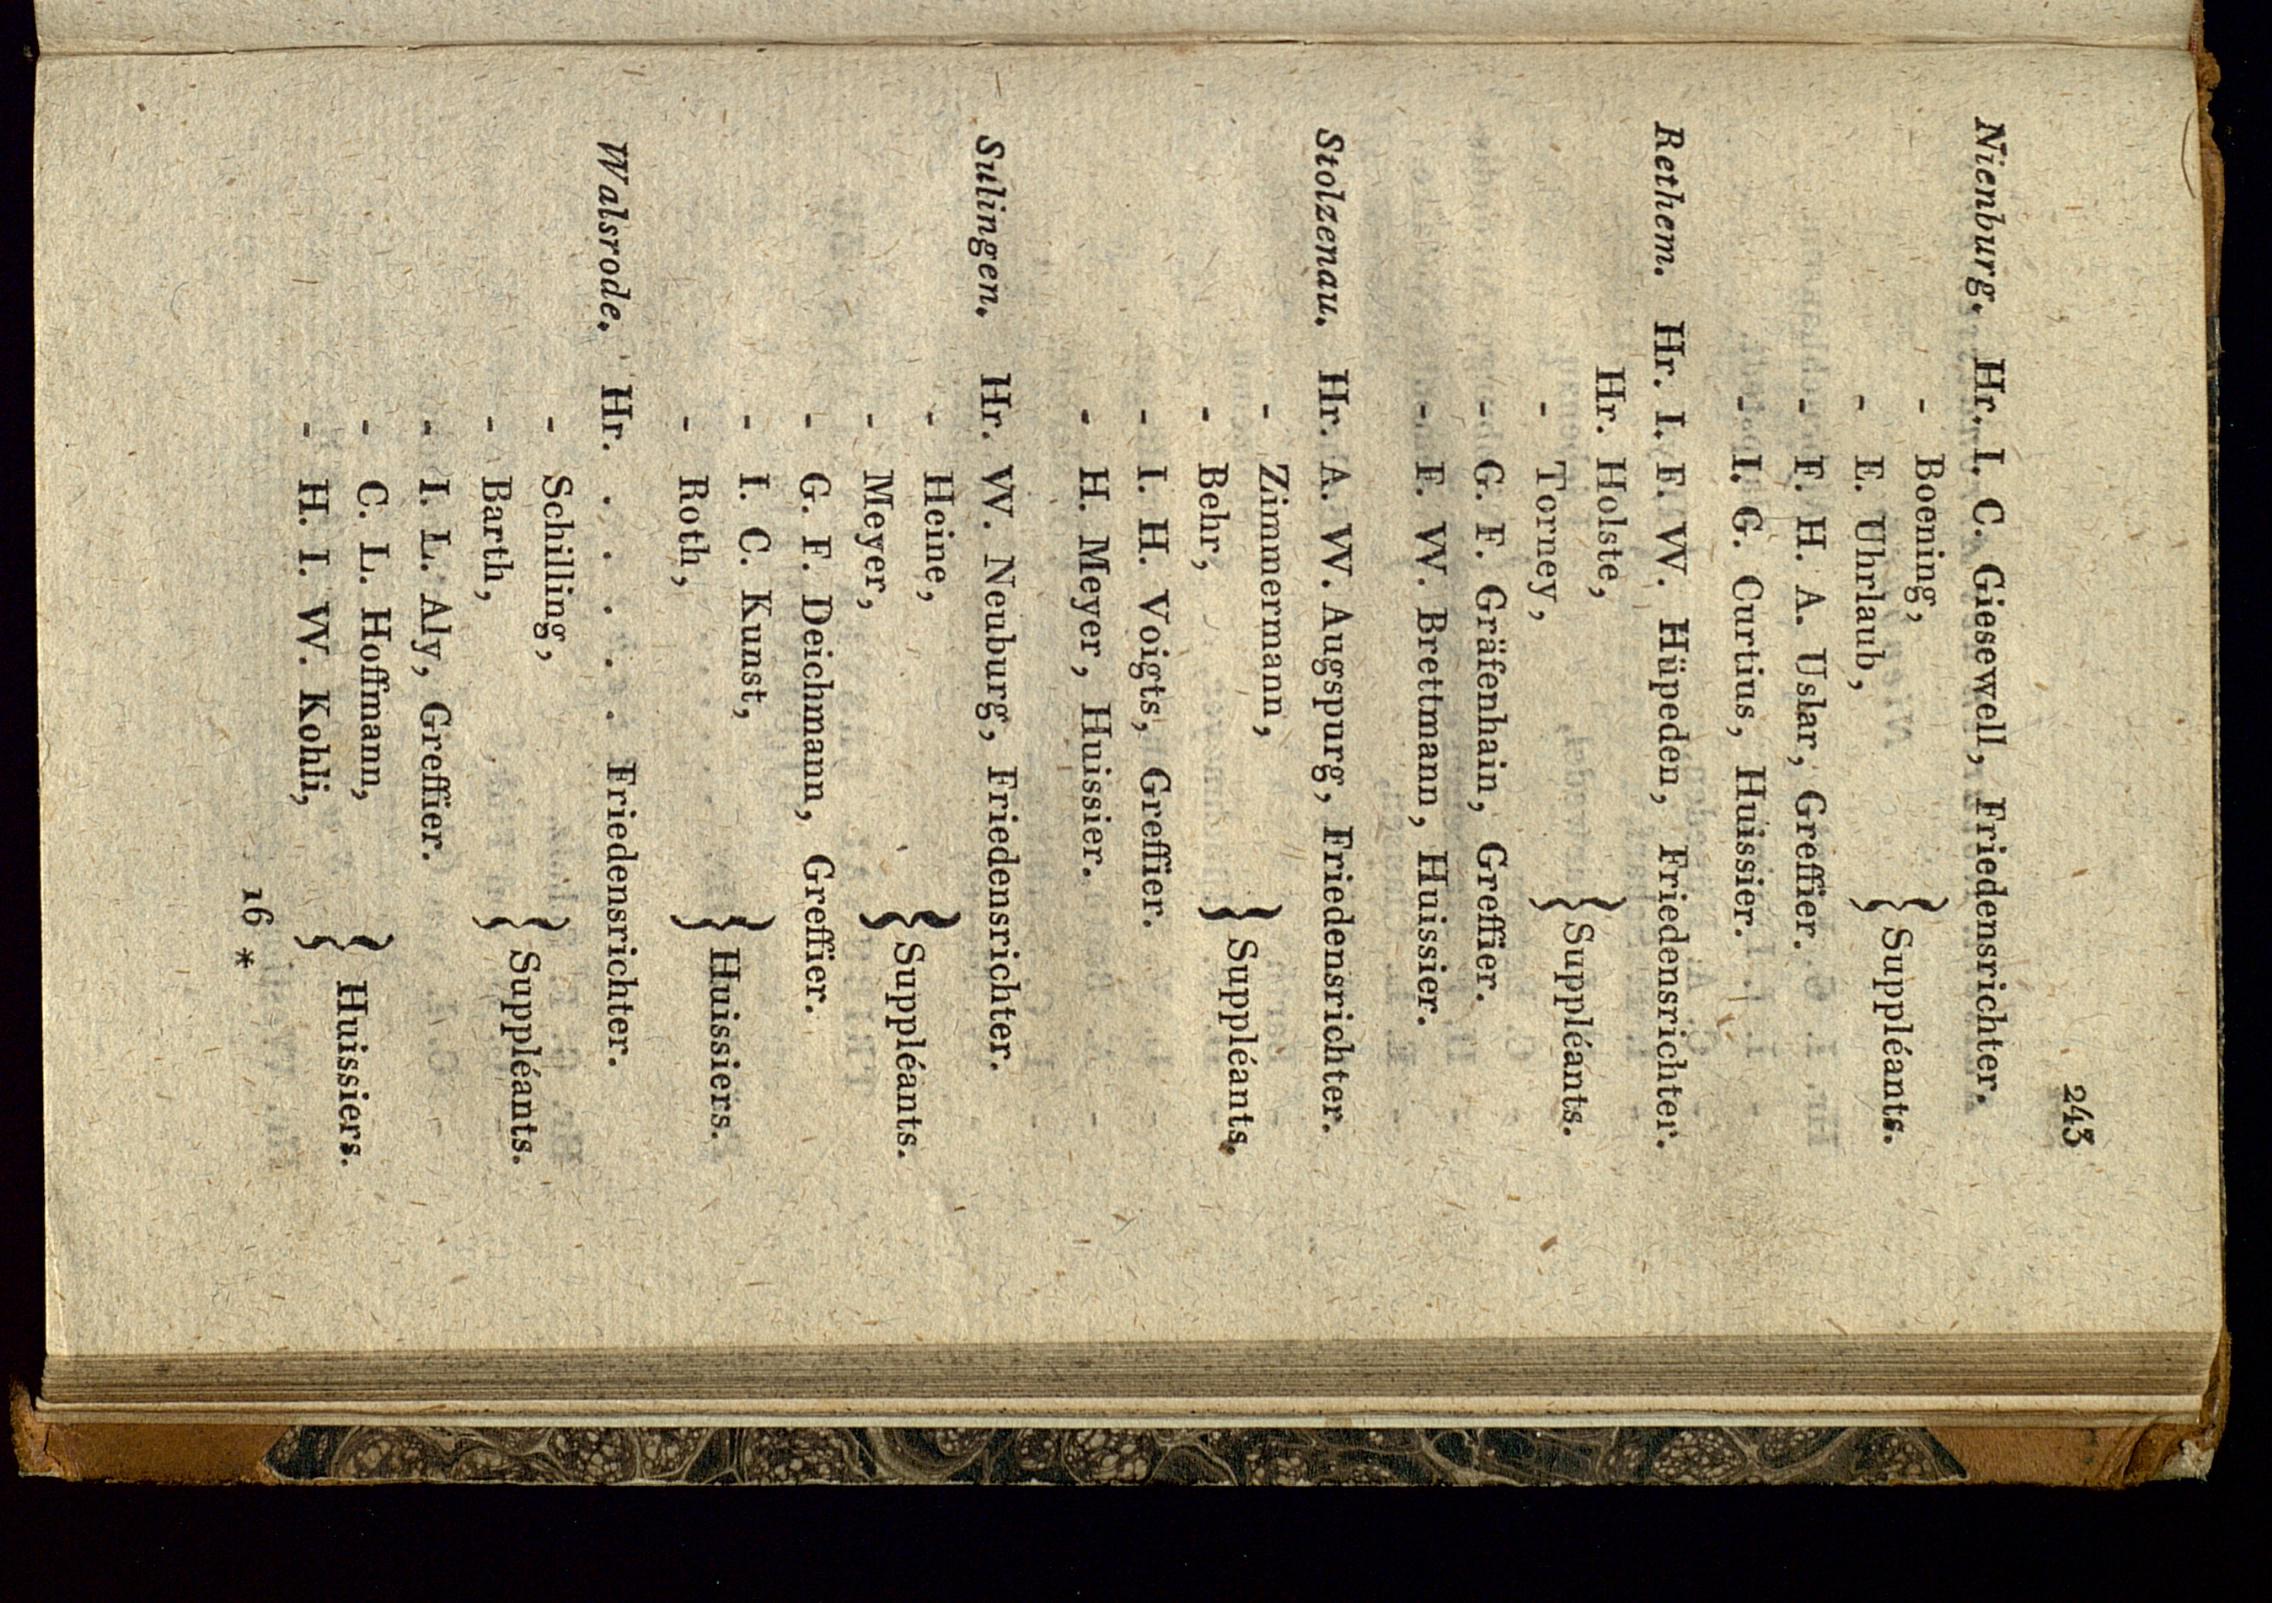 243
Nienburg. Hr. I. C. Giesewell, Friedensrichter.
- Boening,
- E. Uhrlaub,
} Suppléants.
- F. H. A. Uslar, Greffier.
- I. G. Curtius, Huissier.
Rethem. Hr. I. F. W. Hüpeden, Friedensrichter.
Hr. Holste,
- Torney,
} Suppléants.
- G. F. Gräfenhain, Greffier.
- F. W. Brettmann, Huissier.
Stolzenau. Hr. A. W. Augspurg, Friedensrichter.
- Zimmermann,
- Behr,
} Suppléants.
- I. H. Voigts, Greffier.
- H. Meyer, Huissier.
Sulingen. Hr. W. Neuburg, Friedensrichter.
- Heine,
- Meyer,
} Suppléants.
- G. F. Deichmann, Greffier.
- I. C. Kunst,
- Roth,
} Huissiers.
Walsrode. Hr. . . . . . Friedensrichter.
- Schilling,
- Barth,
} Suppléants.
- I. L. Aly, Greffier.
- C. L. Hoffmann,
- H. I. W. Kohli,
} Huissiers.
16 *